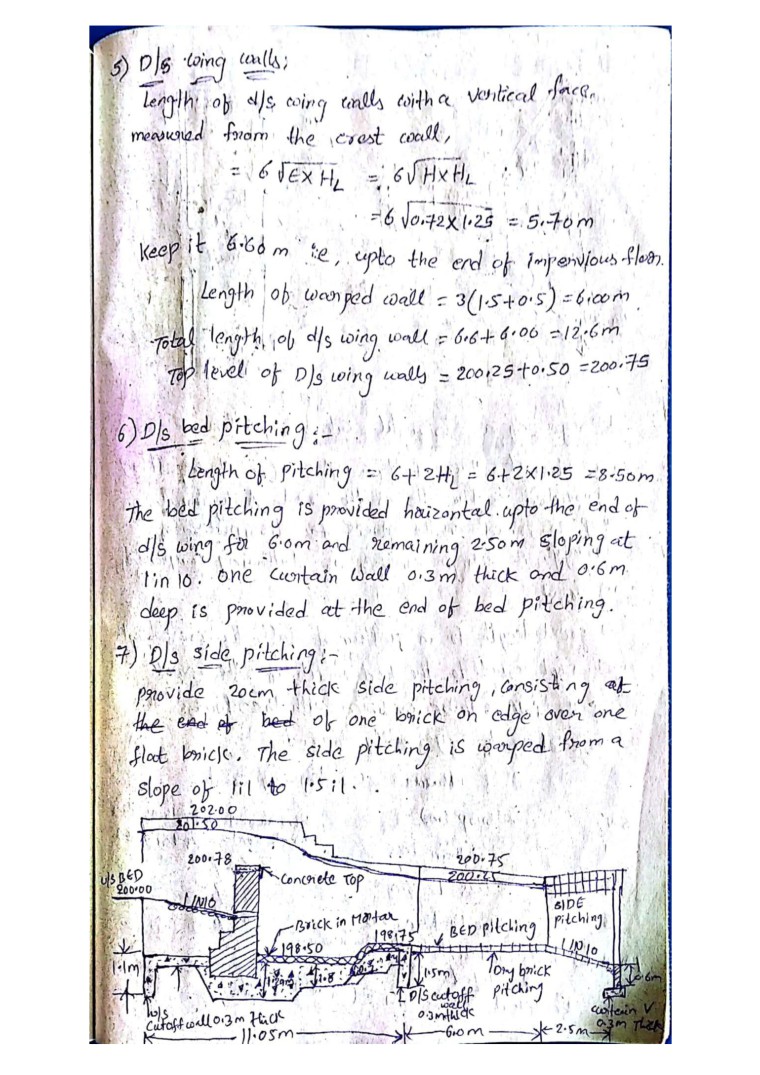 5) D/s wing walls;
Length of d/s wing walls with a vertical face,
measured from the crest wall,
= 6√E×H_L = 6√H×H_L
= 6√0.72×1.25 = 5.70m
Keep it 6.60m ie, upto the end of impervious floor.
Length of warped wall = 3(1.5+0.5) = 6.00m
Total length of d/s wing wall = 6.6+6.00 = 12.6m
Top level of D/s wing walls = 200.25+0.50 = 200.75
6) D/s bed pitching :-
Length of pitching = 6+2H_L = 6+2×1.25 = 8.50m
The bed pitching is provided haizontal upto the end of
d/s wing for 6.0m and remaining 2.50m sloping at
1 in 10. one curtain wall 0.3m thick and 0.6m
deep is provided at the end of bed pitching.
7) D/s side pitching :-
provide 20cm thick side pitching, consisting at
the end of bed of one brick on edge over one
flat brick. The side pitching is warped from a
slope of 1:1 to 1.5:1.
202.00
201.50
200.78
200.75
U/S BED
200.00
Concrete Top
1 IN 10
SIDE
pitching
Brick in Mortar
198.75
BED pitching
198.50
1 IN 10
1.1m
1.5m
Dry brick
pitching
0.6m
U/S
Cutoff wall 0.3m thick
D/S cutoff
wall
0.3m thick
curtain
0.3m Thick
11.05m
6.0m
2.5m